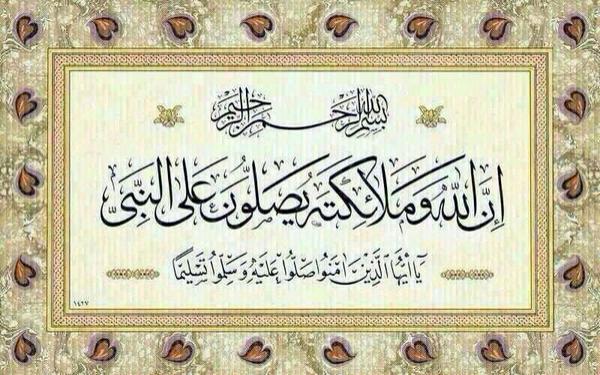 بسم الله الرحمن الرحيم
إن الله وملائكته يصلون على النبي
يا أيها الذين آمنوا صلوا عليه وسلموا تسليما
١٤٢٧